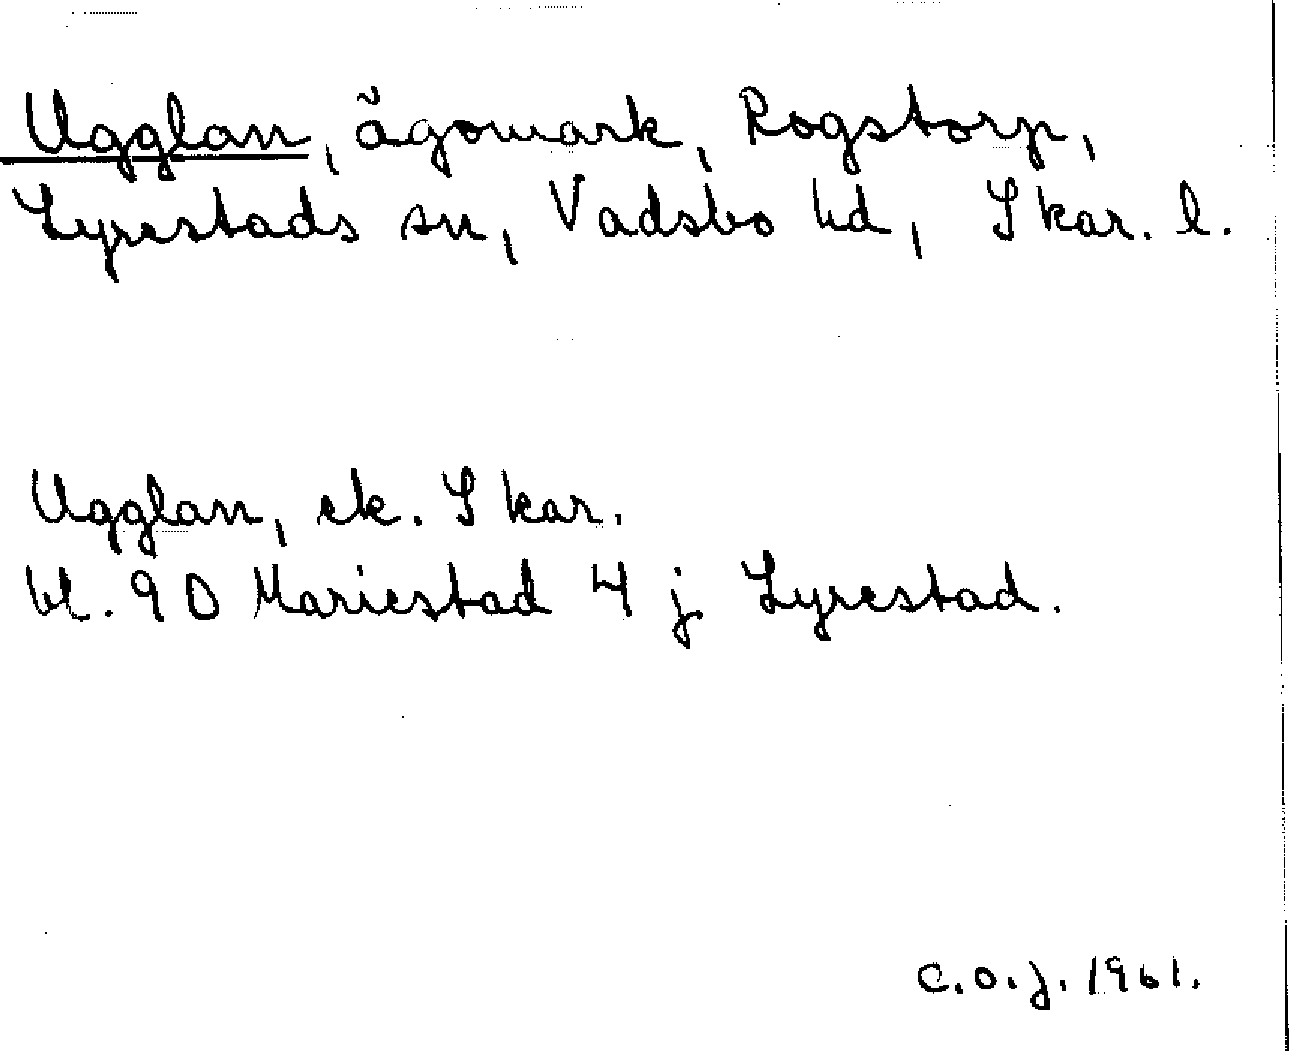 Ugglan, ägomark, Rogstorp,
Lyrestads sn, Vadsbo hd, Skar. l.
Ugglan, ek. Skar.
bl. 9 D Mariestad 4 j Lyrestad.
C.O.J. 1961.